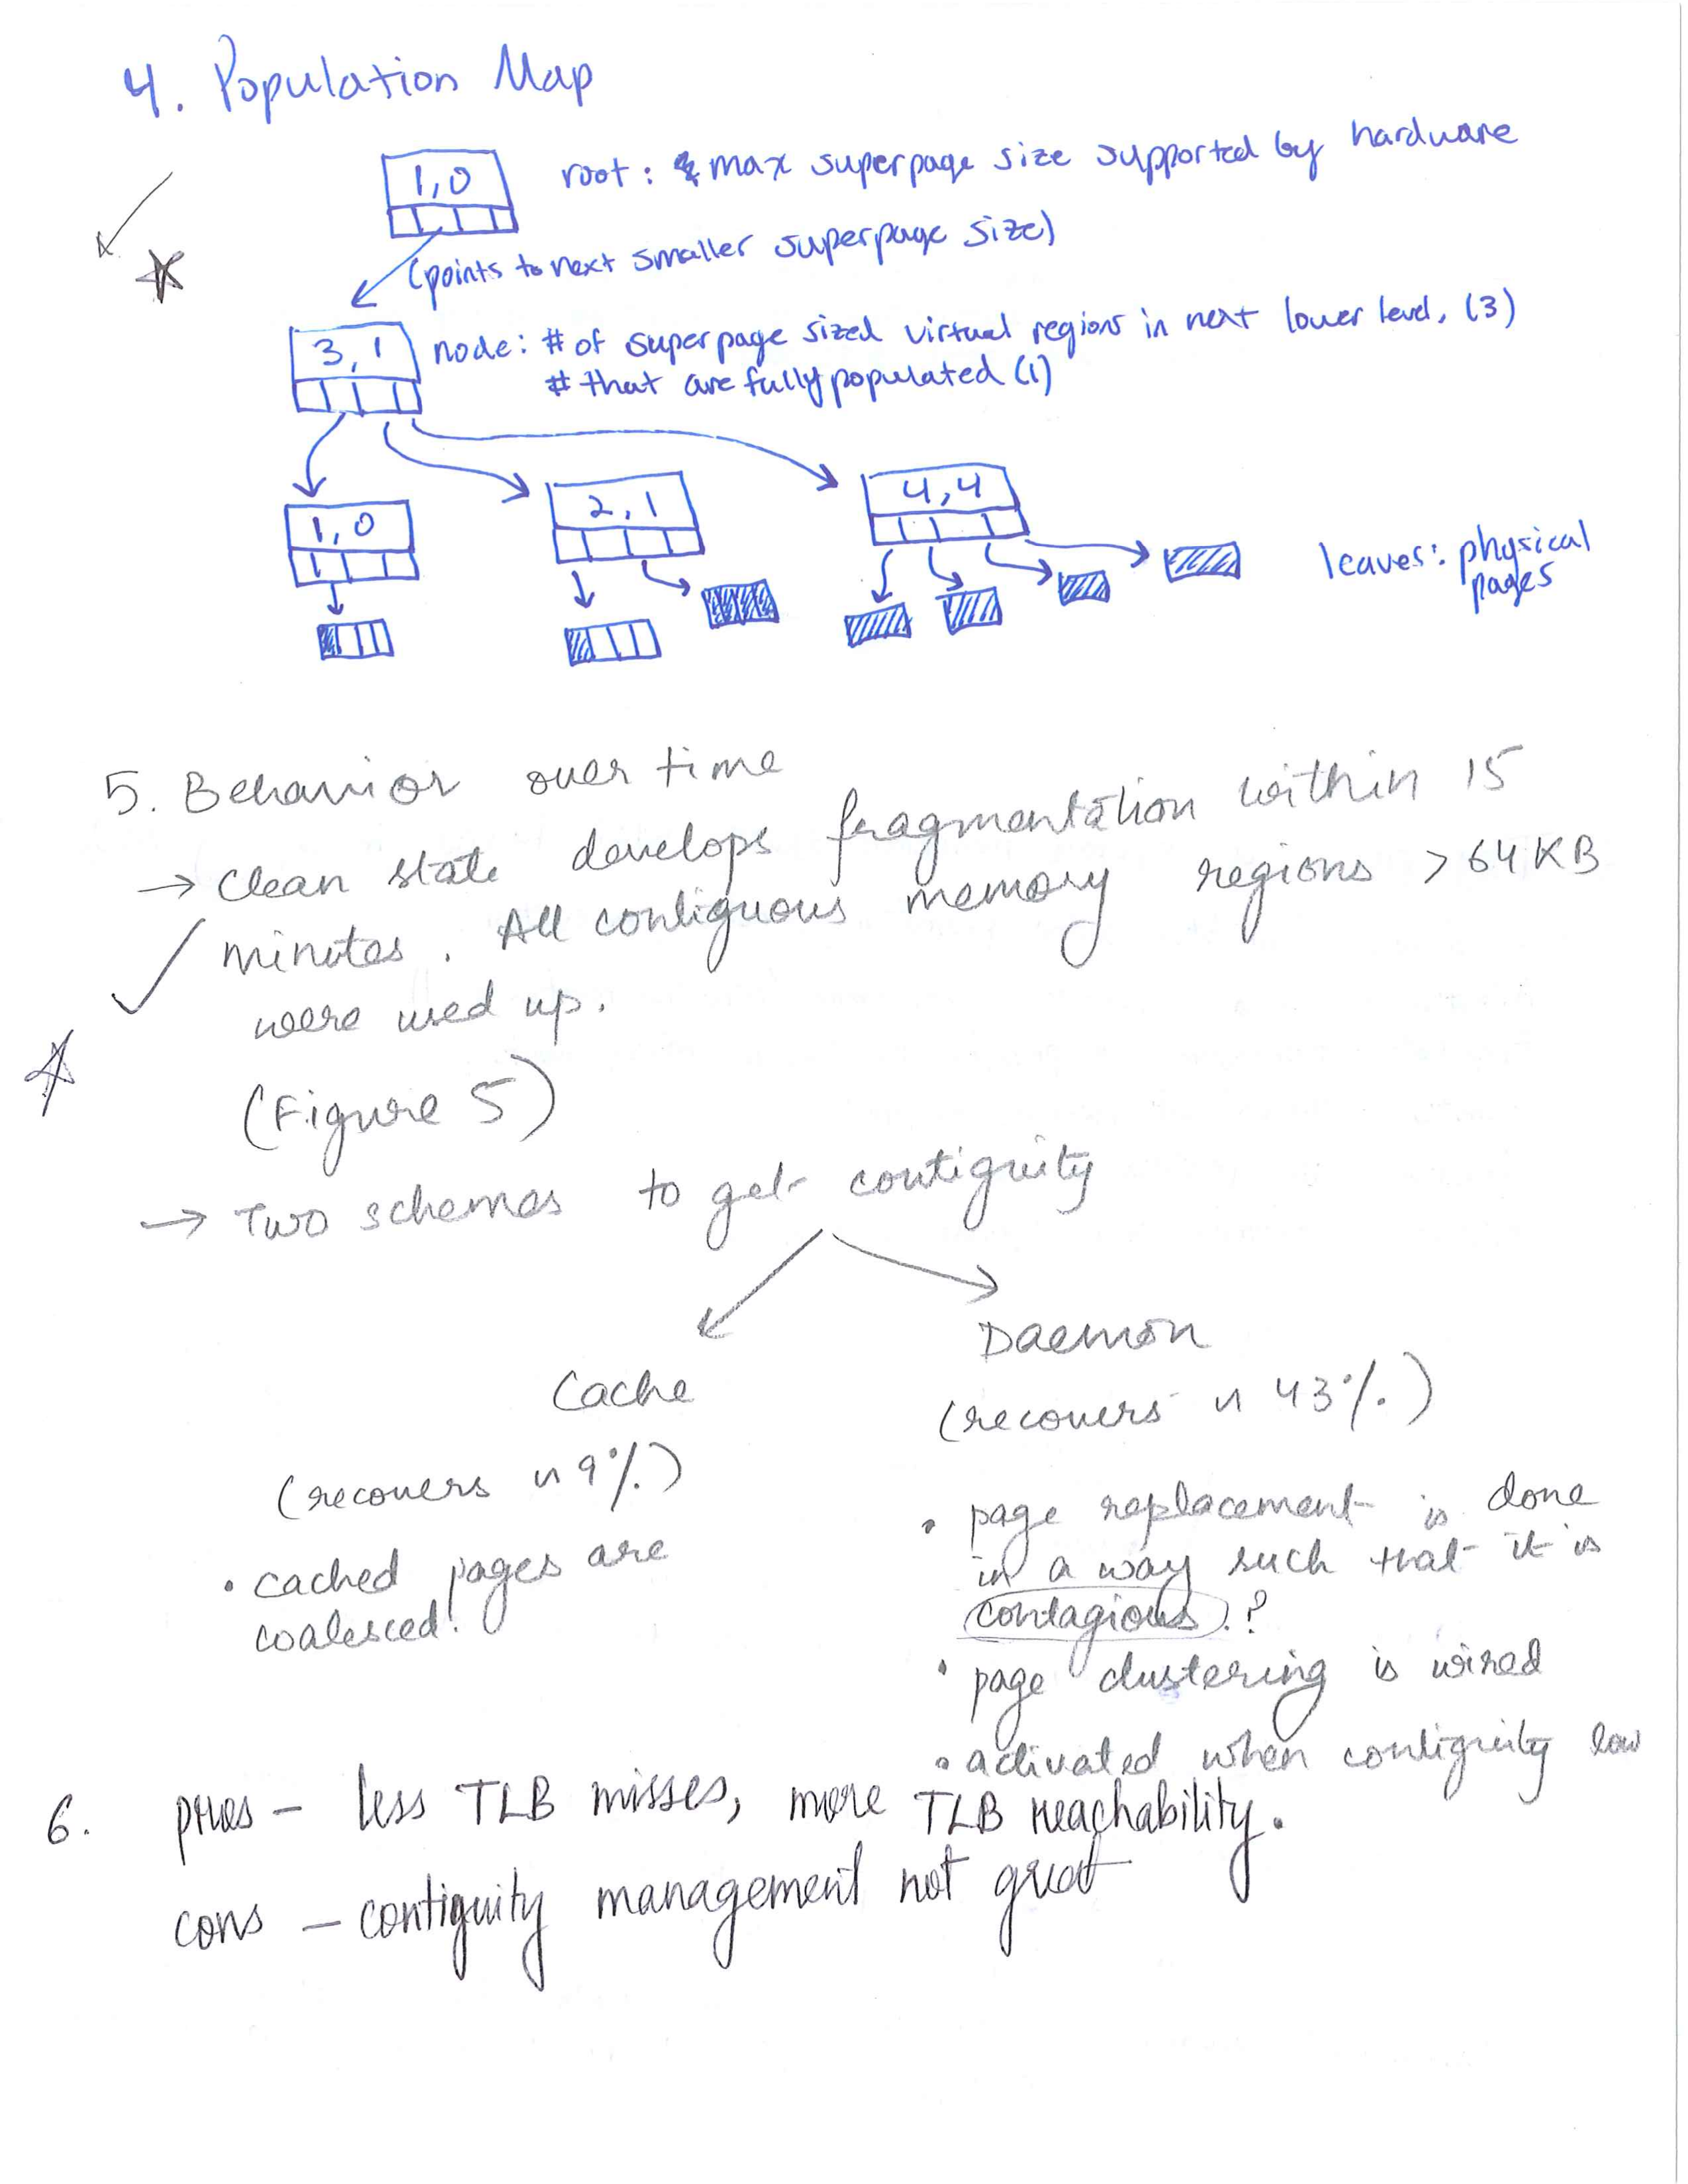 4. Population Map
1,0
root: max superpage size supported by hardware
(points to next smaller superpage size)
3,1
node: # of superpage sized virtual regions in next lower level, (3)
# that are fully populated (1)
1,0
2,1
4,4
leaves: physical
pages
5. Behavior over time
→ Clean state develops fragmentation within 15
minutes. All contiguous memory regions > 64 KB
were used up.
(Figure 5)
→ Two schemes to get contiguity
Cache
(recovers ~ 9%)
• cached pages are
coalesced!
Daemon
(recovers ~ 43%)
• page replacement is done
in a way such that it is
contagious.?
• page clustering is wired
• activated when contiguity low
6. pros - less TLB misses, more TLB reachability.
cons - contiguity management not great